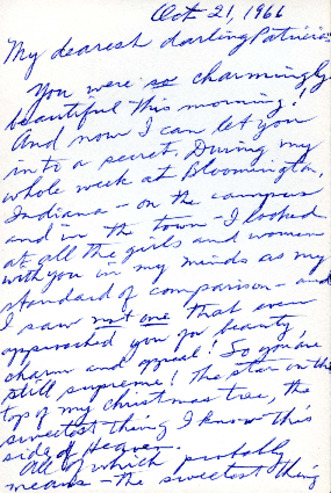 Oct 21, 1966
My dearest darling Patricia
You were so charmingly
beautiful this morning!
And now I can let you
into a secret. During my
whole week at Bloomington,
Indiana - on the campus
and in the town - I looked
at all the girls and women
with you in my minds as my
standard of comparison - and
I saw not one that even
approached you for beauty,
charm and appeal! So you are
still supreme! The star on the
top of my christmas tree, the
sweetest thing I know this
side of Heaven.
All of which probably
means - the sweetest thing